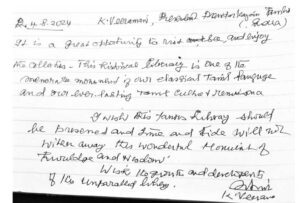 4.8.2024 K. Veeramani, President Dravidar Kazhagam
(India)
It is a great opportunity to visit and enjoy
its collection - This historical library is one of the
memorable monument of our classical Tamil language
and our everlasting Tamil culture &
I wish this famous library should
be preserved and time and tide will not
wither away this wonderful Monument of
Knowledge and wisdom
Wish its growth and development
of its unparallel library.
K. Veeramani